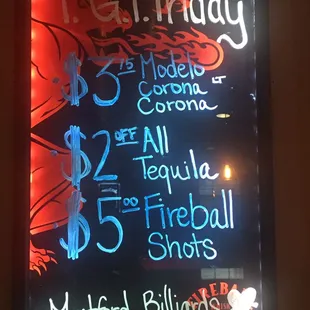 T.G.I. Friday
$3.15 Modelo
Corona LT
Corona
$2 OFF All
Tequila
$5.00 Fireball
Shots
Billiards
FIREBALL